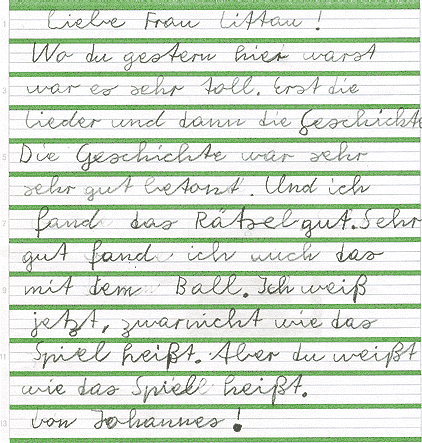 Liebe Frau Littau!
Wo du gestern hier warst
war es sehr toll. Erst die
Lieder und dann die Geschichte
Die Geschichte war sehr
sehr gut betont. Und ich
fand das Rätsel gut. Sehr
gut fand ich auch das
mit dem Ball. Ich weiß
jetzt, zwar nicht wie das
Spiel heißt. Aber du weißt
wie das Spiel heißt.
von Johannes!